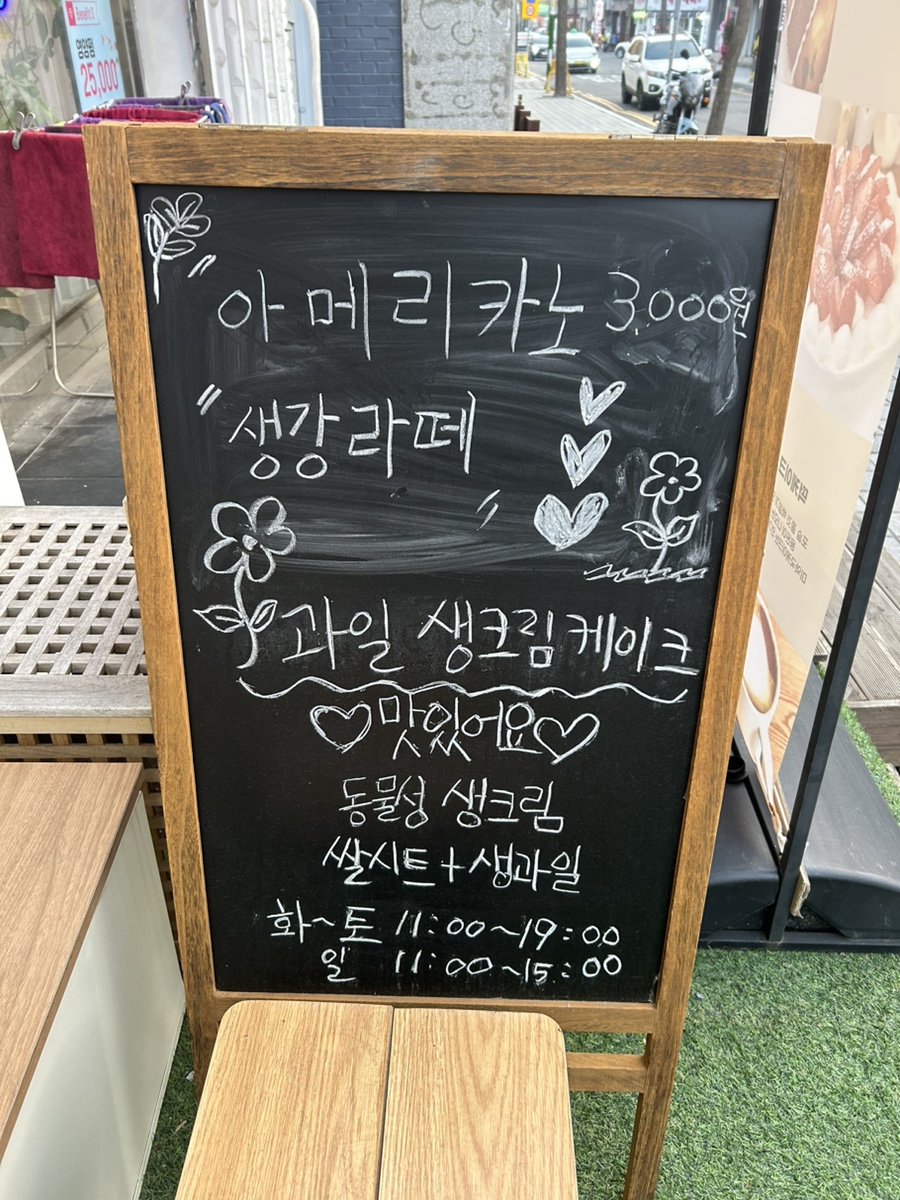 25,000
아메리카노 3,000원
생강라떼
과일 생크림케이크
맛있어요
동물성 생크림
쌀시트+생과일
화~토 11:00~19:00
일 11:00~15:00